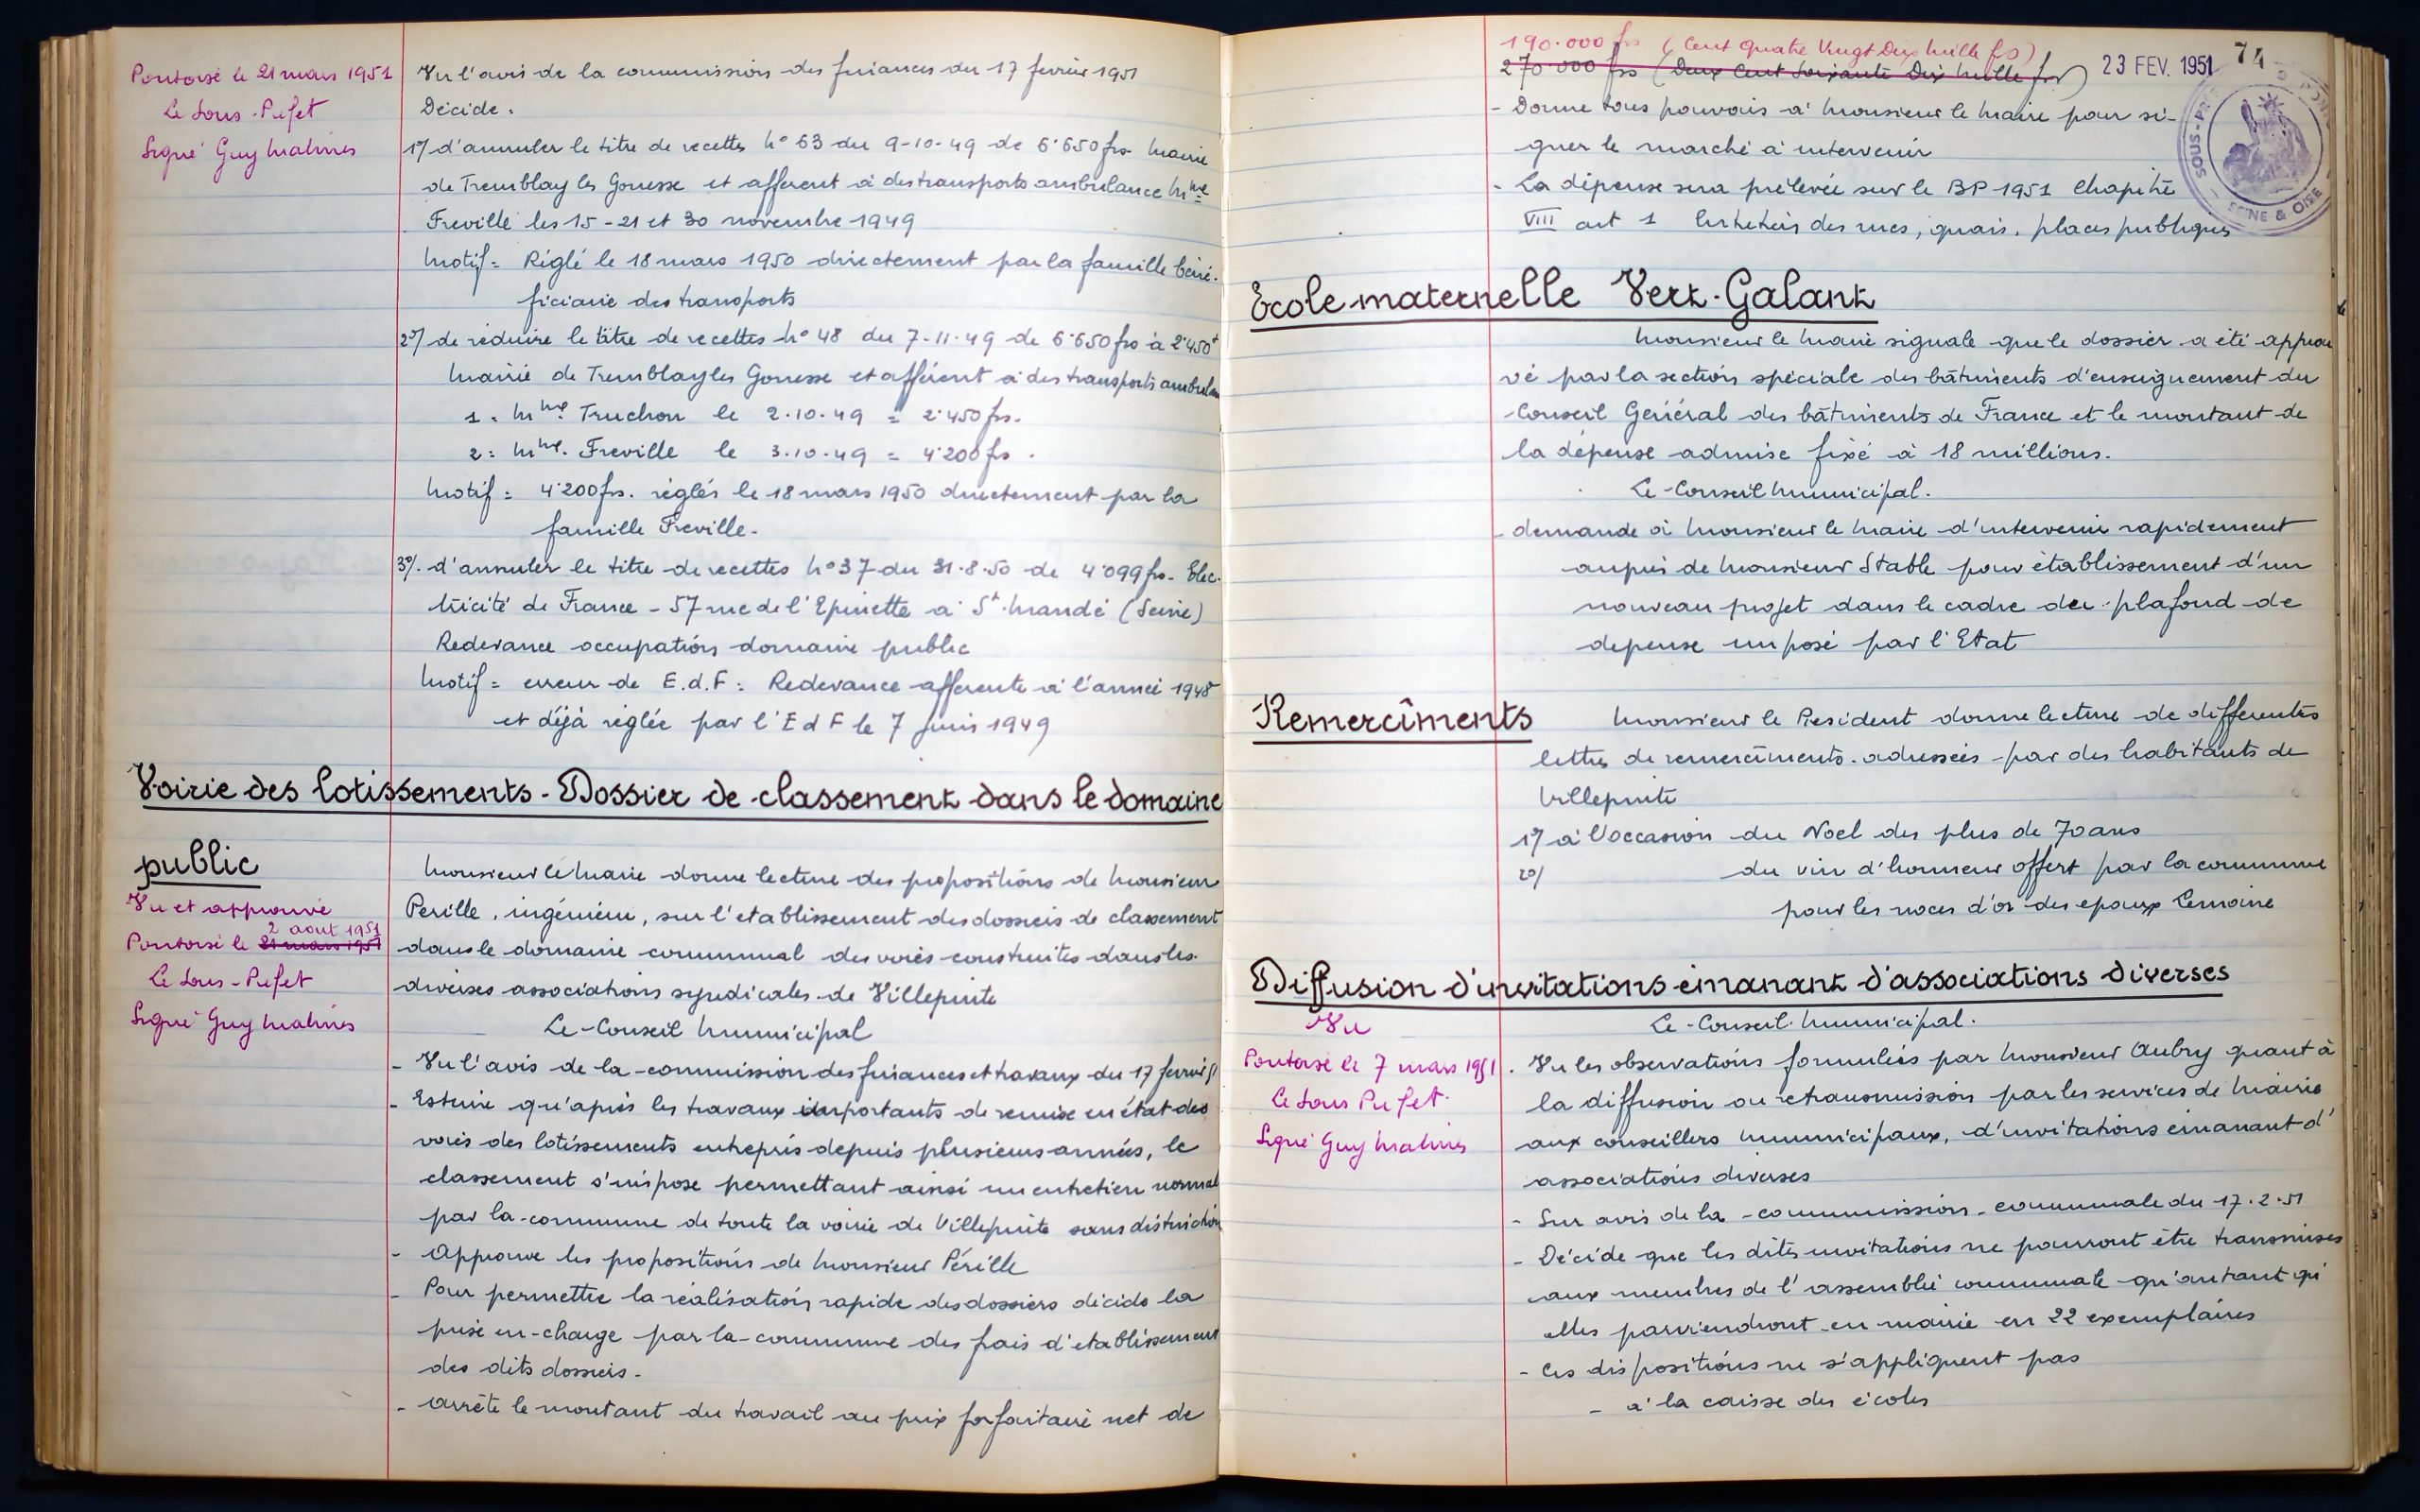 Pontoise le 21 mars 1951
Le Sous-Prefet
Signé Guy Malines
Vu l'avis de la commission des finances du 17 fevrier 1951
Décide :
1°/ d'annuler le titre de recettes N° 63 du 9-10-49 de 6.650 frs Mairie
de Tremblay les Gonesse et afferent à des transports ambulance Mme
Freville les 15-21 et 30 novembre 1949
Motif = Réglé le 18 mars 1950 directement par la famille béné-
ficiaire des transports
2°/ de réduire le titre de recettes N° 48 du 7-11-49 de 6.650 frs à 2.450 f
Mairie de Tremblay les Gonesse et afférent à des transports ambulan
1. Mme Truchon le 2.10.49 = 2.450 frs.
2. Mme Freville le 3.10.49 = 4.200 frs.
Motif = 4.200 frs. réglés le 18 mars 1950 directement par la
famille Freville.
3°/. d'annuler le titre de recettes N° 37 du 31.8.50 de 4.099 frs. Elec-
tricité de France - 57 rue de l'Epinette à St Mandé (Seine)
Redevance occupation domaine public
Motif = erreur de E.d.F : Redevance afferente à l'année 1948
et déjà réglée par l'E d F le 7 juin 1949
Voirie des lotissements - Dossier de classement dans le domaine
public
Vu et approuvé
2 aout 1951
Pontoise le 21 mars 1951
Le Sous-Prefet
Signé Guy Malines
Monsieur le Maire donne lecture des propositions de Monsieur
Perille, ingénieur, sur l'etablissement des dossiers de classement
dans le domaine communal des voies construites dans les
diverses associations syndicales de Villepinte
Le Conseil Municipal
- Vu l'avis de la commission des finances et travaux du 17 fevrier 51
- Estime qu'après les travaux importants de remise en état des
voies des lotissements entrepris depuis plusieurs années, le
classement s'impose permettant ainsi un entretien normal
par la commune de toute la voirie de Villepinte sans distinction
- Approuve les propositions de Monsieur Pérille
- Pour permettre la réalisation rapide des dossiers décide la
prise en charge par la commune des frais d'etablissement
des dits dossiers.
- Arrête le montant du travail au prix forfaitaire net de
190.000 frs (Cent Quatre Vingt Dix Mille frs)
270.000 frs (Deux Cent Soixante Dix Mille frs) 23 FEV. 1951 74
SOUS-PREF
SEINE & OISE
- Donne tous pouvoirs à Monsieur le Maire pour si-
gner le marché à intervenir
- La dépense sera prélevée sur le BP 1951 Chapitre
VIII art 1 Entretien des rues, quais, places publiques
Ecole maternelle Vert-Galant
Monsieur le Maire signale que le dossier a été approu
vé par la section spéciale des bâtiments d'enseignement du
Conseil Général des bâtiments de France et le montant de
la dépense admise fixé à 18 millions.
Le Conseil Municipal.
- demande à Monsieur le Maire d'intervenir rapidement
auprès de Monsieur Stable pour établissement d'un
nouveau projet dans le cadre du plafond de
depense imposé par l'Etat
Remercîments
Monsieur le President donne lecture de differentes
lettres de remercîments adressées par des habitants de
Villepinte
1°/ à l'occasion du Noel des plus de 70 ans
2°/ du vin d'honneur offert par la commune
pour les noces d'or des epoux Lemoine
Diffusion d'invitations émanant d'associations diverses
Vu
Pontoise le 7 mars 1951
Le Sous Prefet
Signé Guy Malines
Le Conseil Municipal.
. Vu les observations formulées par Monsieur Aubry quant à
la diffusion ou retransmission par les services de Mairie
aux conseillers municipaux, d'invitations émanant d'
associations diverses
- Sur avis de la commission communale du 17.2.51
- Décide que les dites invitations ne pourront être transmises
aux membres de l'assemblée communale qu'autant qu'
elles parviendront en mairie en 22 exemplaires
- Ces dispositions ne s'appliquent pas
- à la caisse des écoles